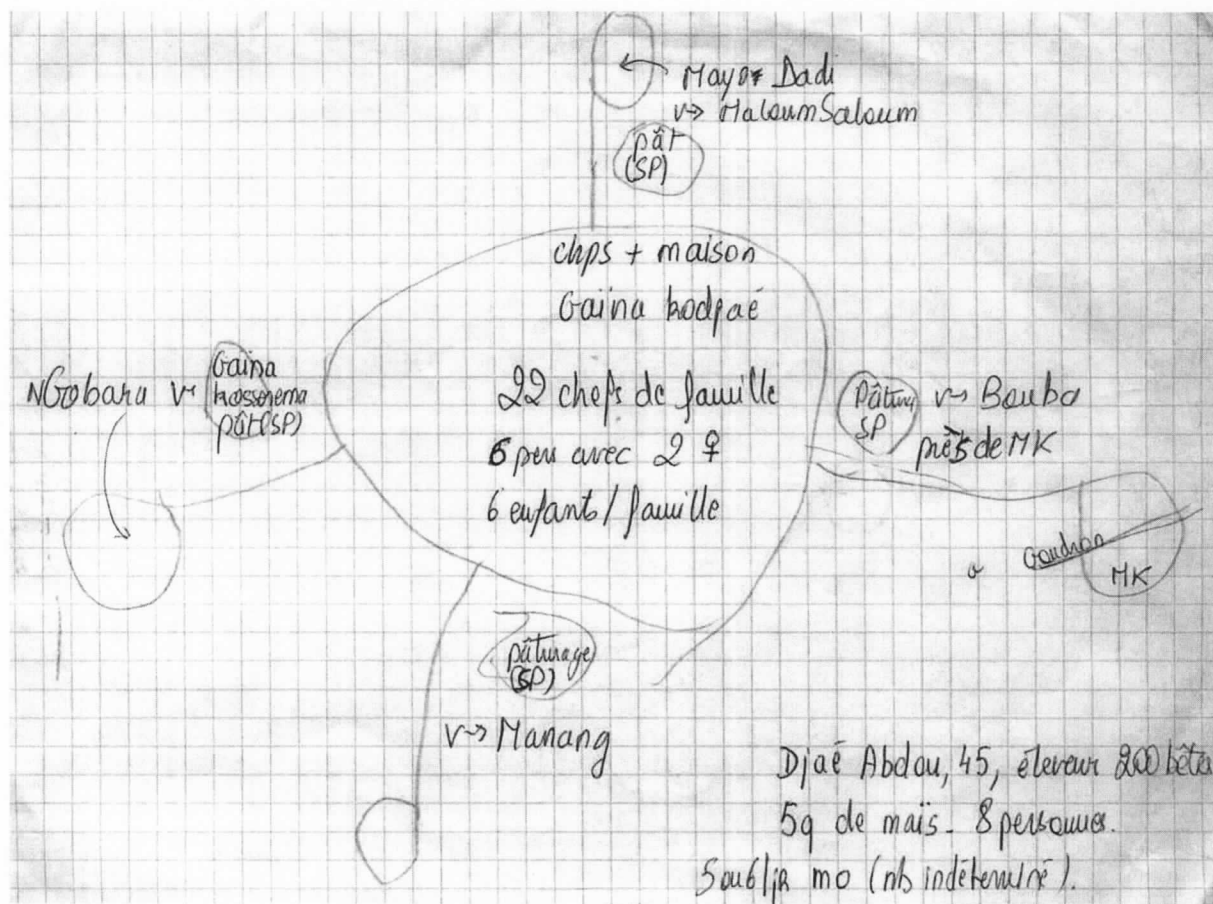 Mayo Dadi
v→ Maloum Saloum
pât
(SP)
chps + maison
Gaïna kodjaé
22 chefs de famille
6 pers avec 2 ♀
6 enfants / famille
NGobara v→
Gaïna
pât (SP)
Pâturage
SP
v→ Bouba
près de MK
Goudron
MK
pâturage
(SP)
v→ Manang
Djaé Abdou, 45, éleveur 200 bêtes
5q de maïs - 8 personnes.
5 ou 6 mo (nb indéterminé).